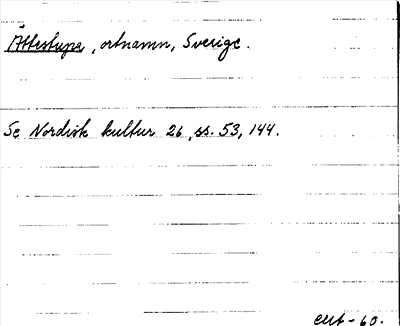 Ättestupa, ortnamn, Sverige.
Se Nordisk kultur 26, ss. 53, 144.
-60.